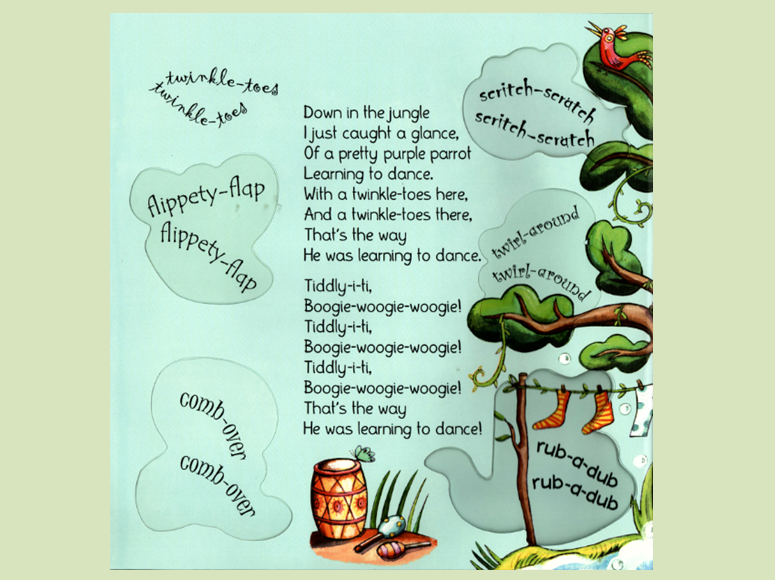 twinkle-toes
twinkle-toes
flippety-flap
flippety-flap
comb-over
comb-over
Down in the jungle
I just caught a glance,
Of a pretty purple parrot
Learning to dance.
With a twinkle-toes here,
And a twinkle-toes there,
That's the way
He was learning to dance.
Tiddly-i-ti,
Boogie-woogie-woogie!
Tiddly-i-ti,
Boogie-woogie-woogie!
Tiddly-i-ti,
Boogie-woogie-woogie!
That's the way
He was learning to dance!
scritch-scratch
scritch-scratch
twirl-around
twirl-around
rub-a-dub
rub-a-dub